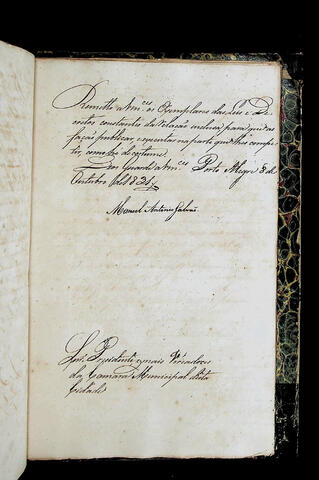 Remetto a Vm.ces os Exemplares das Leis e De-
cretos constantes da relação incluza para que os
fação publicar, e executar na parte que lhes compe-
tir, como he de costume.
Deos Guarde a Vm.ces Porto Alegre 8 de
Outubro de 1831
Manoel Antonio Galvão
Snr.s Presidente e mais Vereadores
da Camara Municipal desta
Cidade